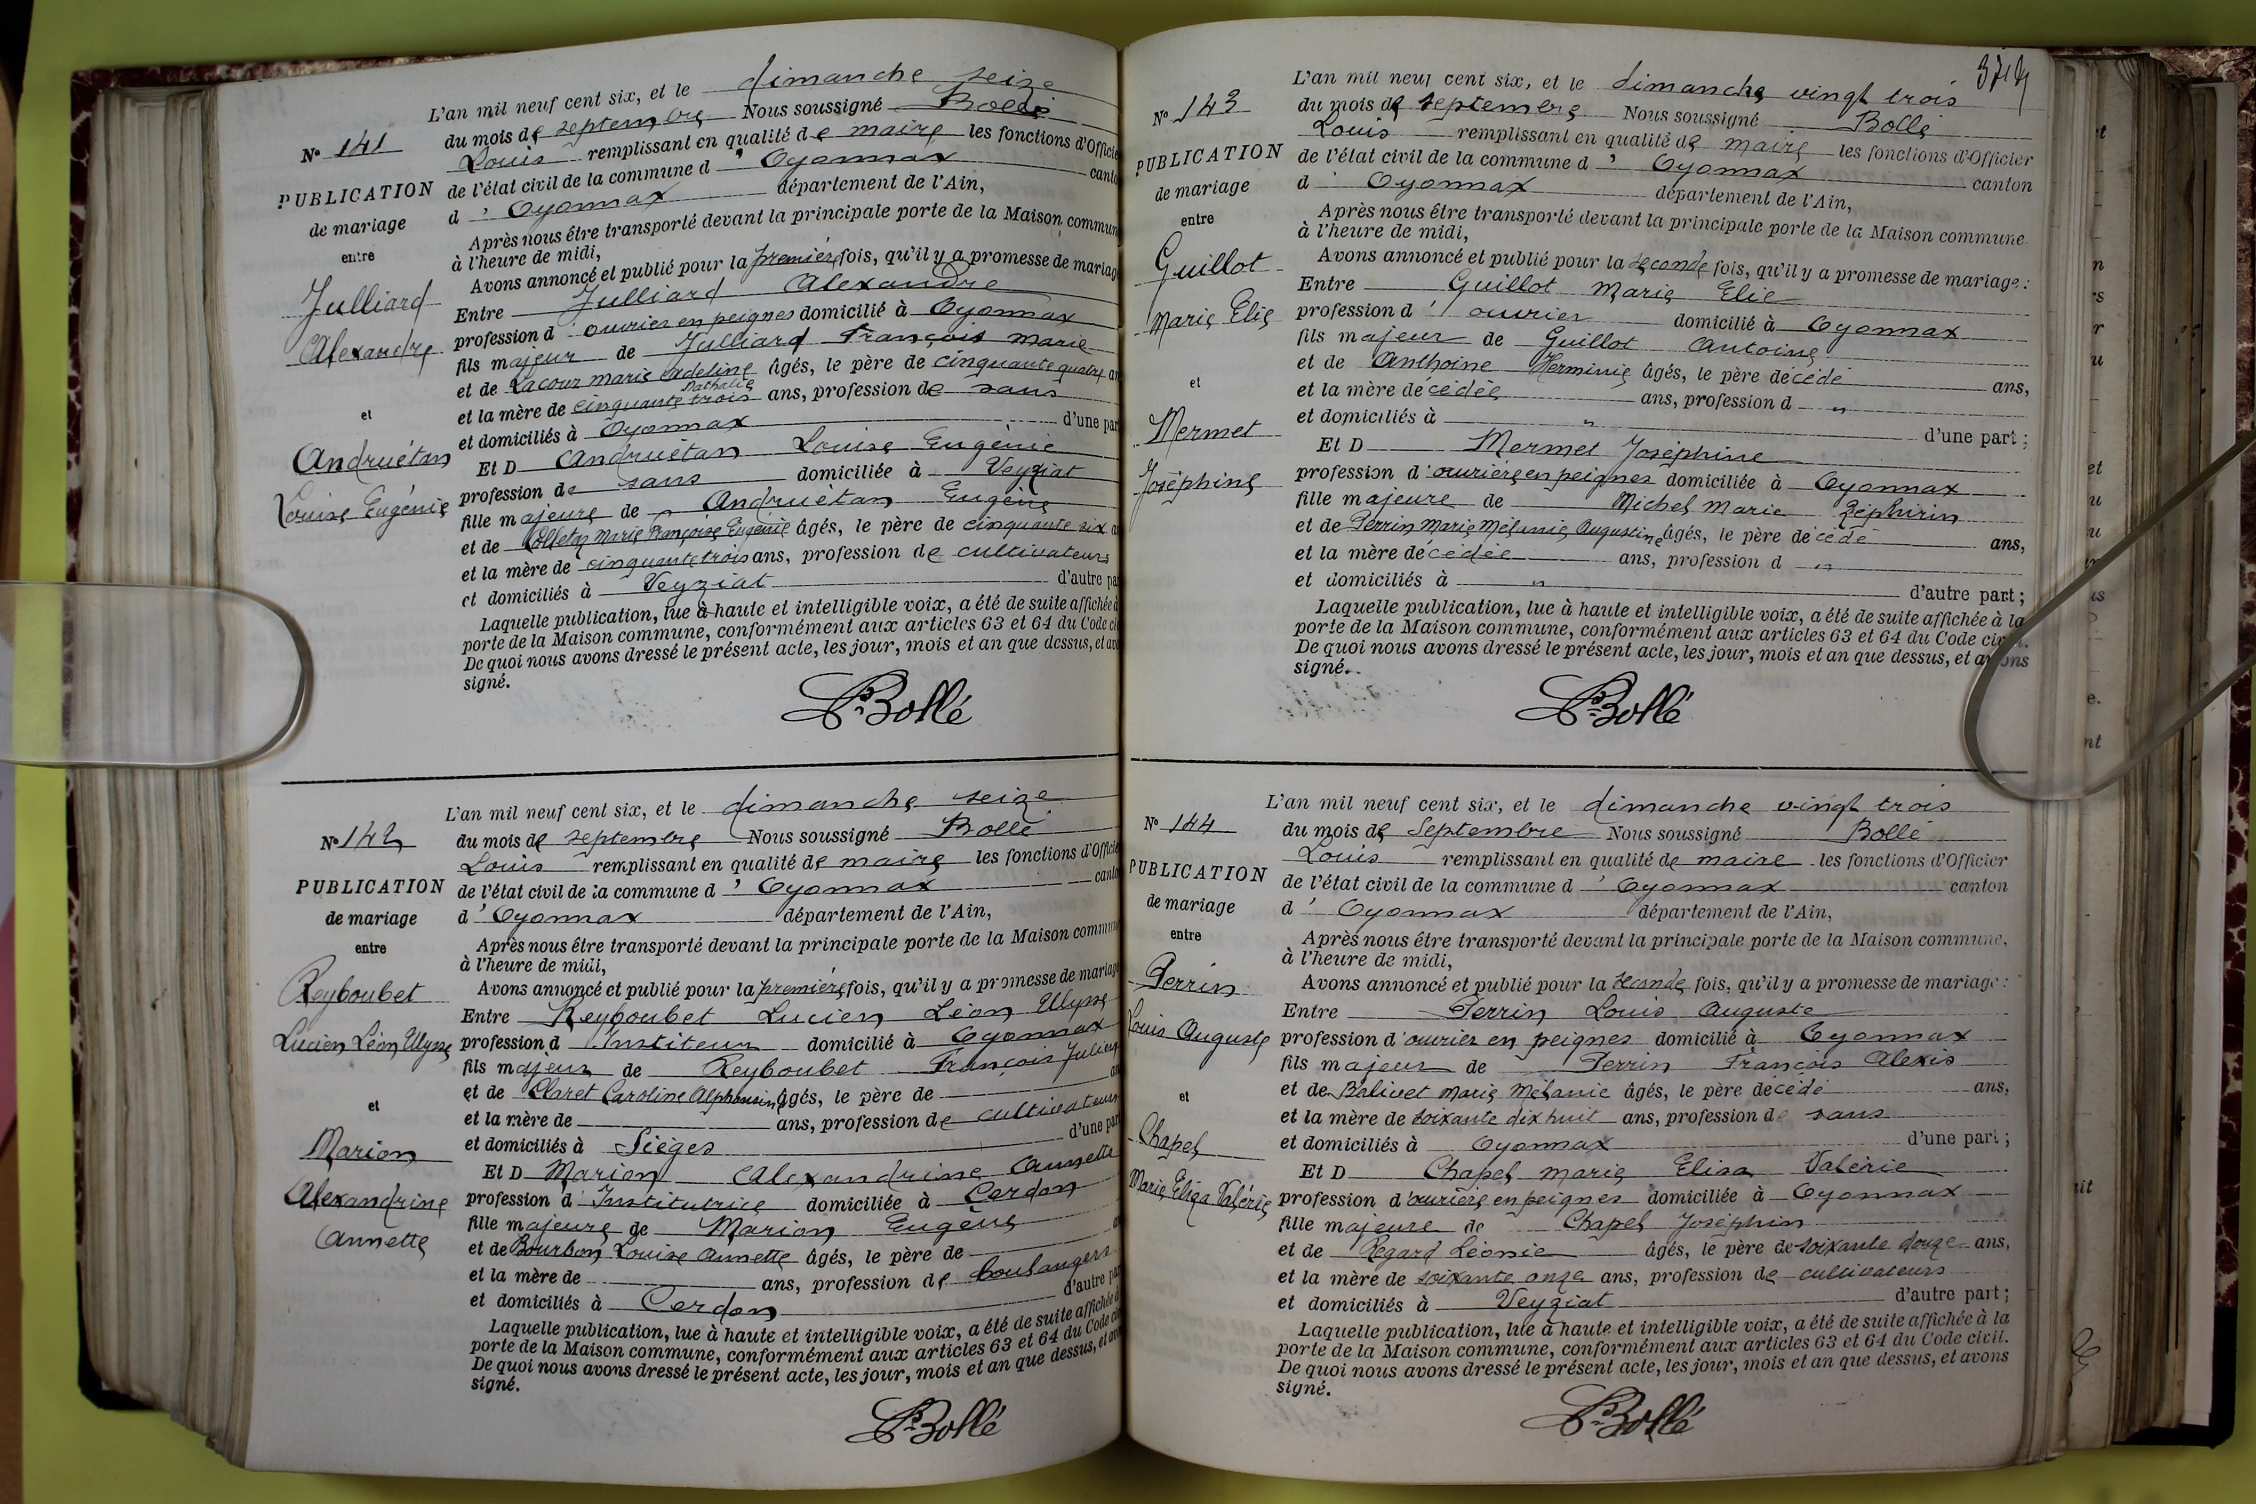 L'an mil neuf cent six, et le dimanche seize
N° 141
du mois de septembre Nous soussigné Bollé
Louis remplissant en qualité de maire les fonctions d'Officie
PUBLICATION
de mariage
entre
de l'état civil de la commune d' Oyonnax canto
d' Oyonnax département de l'Ain,
Après nous être transporté devant la principale porte de la Maison commun
à l'heure de midi,
Avons annoncé et publié pour la première fois, qu'il y a promesse de mariag
Julliard
Alexandre
et
Andruétan
Louise Eugénie
Entre Julliard Alexandre
profession d' ouvrier en peignes domicilié à Oyonnax
fils majeur de Julliard François Marie
et de Lacour Marie Adeline âgés, le père de cinquante quatre an
Nathalie
et la mère de cinquante trois ans, profession de sans
et domiciliés à Oyonnax d'une par
Et D Andruétan Louise Eugénie
profession de sans domiciliée à Veyziat
fille majeure de Andruétan Eugène
et de Colletaz Marie Françoise Eugénie âgés, le père de cinquante six a
et la mère de cinquante trois ans, profession de cultivateurs
et domiciliés à Veyziat d'autre pa
Laquelle publication, lue à haute et intelligible voix, a été de suite affichée à
porte de la Maison commune, conformément aux articles 63 et 64 du Code ci
De quoi nous avons dressé le présent acte, les jour, mois et an que dessus, et avo
signé.
Ls Bollé
L'an mil neuf cent six, et le dimanche seize
N° 142
du mois de septembre Nous soussigné Bollé
Louis remplissant en qualité de maire les fonctions d'Officie
PUBLICATION
de mariage
entre
de l'état civil de la commune d' Oyonnax canto
d' Oyonnax département de l'Ain,
Après nous être transporté devant la principale porte de la Maison commune
à l'heure de midi,
Avons annoncé et publié pour la première fois, qu'il y a promesse de mariage
Reyboubet
Lucien Léon Ulysse
et
Marion
Alexandrine
Annette
Entre Reyboubet Lucien Léon Ulysse
profession d' Instituteur domicilié à Oyonnax
fils majeur de Reyboubet François Julien
et de Claret Caroline Alphonsine âgés, le père de an
et la mère de ans, profession de cultivateurs
et domiciliés à Sièges d'une par
Et D Marion Alexandrine Annette
profession d' Institutrice domiciliée à Cerdon
fille majeure de Marion Eugène
et de Bourbon Louise Annette âgés, le père de a
et la mère de ans, profession de boulangers
et domiciliés à Cerdon d'autre par
Laquelle publication, lue à haute et intelligible voix, a été de suite affichée à
porte de la Maison commune, conformément aux articles 63 et 64 du Code ci
De quoi nous avons dressé le présent acte, les jour, mois et an que dessus, et avo
signé.
Ls Bollé
L'an mil neuf cent six, et le dimanche vingt trois
N° 143
du mois de septembre Nous soussigné Bollé
Louis remplissant en qualité de maire les fonctions d'Officier
PUBLICATION
de mariage
entre
de l'état civil de la commune d' Oyonnax canton
d' Oyonnax département de l'Ain,
Après nous être transporté devant la principale porte de la Maison commune
à l'heure de midi,
Avons annoncé et publié pour la seconde fois, qu'il y a promesse de mariage :
Guillot
Marie Elie
et
Mermet
Joséphine
Entre Guillot Marie Elie
profession d' ouvrier domicilié à Oyonnax
fils majeur de Guillot Antoine
et de Anthoine Herminie âgés, le père décédé ans,
et la mère décédée ans, profession d "
et domiciliés à " d'une part ;
Et D Mermet Joséphine
profession d' ouvrière en peignes domiciliée à Oyonnax
fille majeure de Michel Marie Zéphirin
et de Perrin Marie Mélanie Augustine âgés, le père décédé ans,
et la mère décédée ans, profession d "
et domiciliés à " d'autre part ;
Laquelle publication, lue à haute et intelligible voix, a été de suite affichée à la
porte de la Maison commune, conformément aux articles 63 et 64 du Code civil.
De quoi nous avons dressé le présent acte, les jour, mois et an que dessus, et avons
signé.
Ls Bollé
L'an mil neuf cent six, et le dimanche vingt trois
N° 144
du mois de Septembre Nous soussigné Bollé
Louis remplissant en qualité de maire les fonctions d'Officier
PUBLICATION
de mariage
entre
de l'état civil de la commune d' Oyonnax canton
d' Oyonnax département de l'Ain,
Après nous être transporté devant la principale porte de la Maison commune,
à l'heure de midi,
Avons annoncé et publié pour la seconde fois, qu'il y a promesse de mariage :
Perrin
Louis Auguste
et
Chapel
Marie Eliza Valérie
Entre Perrin Louis Auguste
profession d' ouvrier en peignes domicilié à Oyonnax
fils majeur de Perrin François Alexis
et de Balivet Marie Mélanie âgés, le père décédé ans,
et la mère de soixante dix huit ans, profession de sans
et domiciliés à Oyonnax d'une part ;
Et D Chapel Marie Eliza Valérie
profession d' ouvrière en peignes domiciliée à Oyonnax
fille majeure de Chapel Joséphin
et de Regard Léonie âgés, le père de soixante douze ans,
et la mère de soixante onze ans, profession de cultivateurs
et domiciliés à Veyziat d'autre part ;
Laquelle publication, lue à haute et intelligible voix, a été de suite affichée à la
porte de la Maison commune, conformément aux articles 63 et 64 du Code civil.
De quoi nous avons dressé le présent acte, les jour, mois et an que dessus, et avons
signé.
Ls Bollé